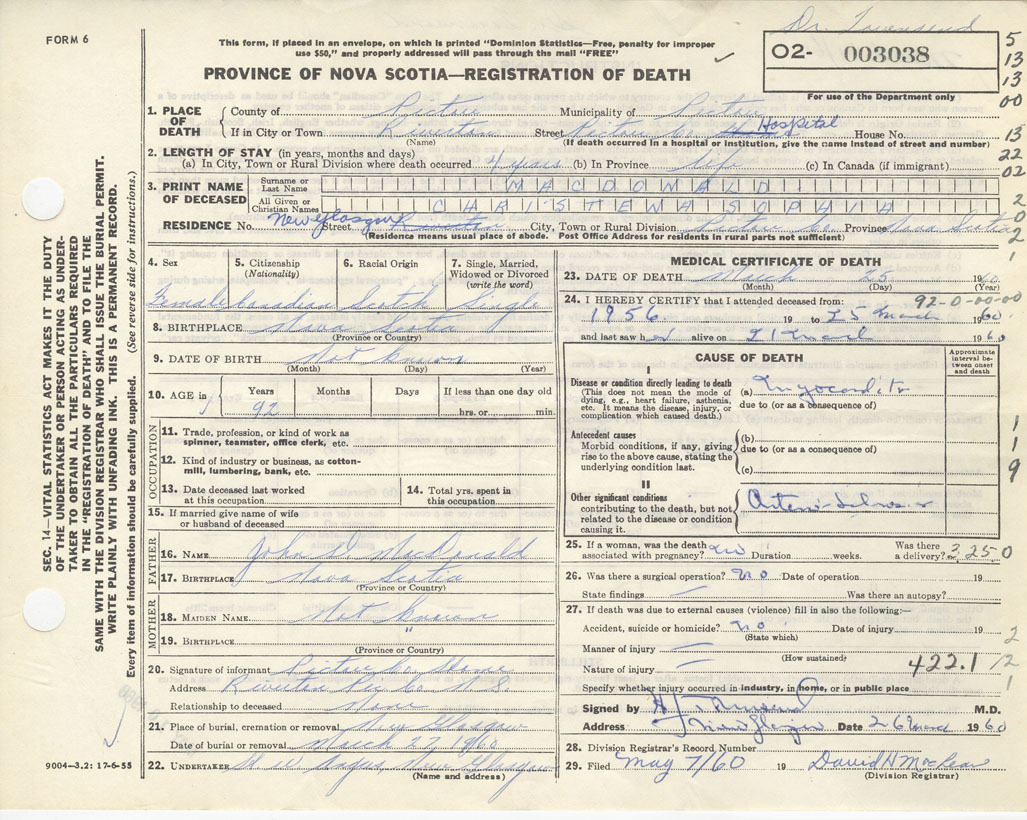 FORM 6
This form, if placed in an envelope, on which is printed "Dominion Statistics—Free, penalty for improper
use $50," and properly addressed will pass through the mail "FREE"
Dr. Townsend
O2- 003038
For use of the Department only
PROVINCE OF NOVA SCOTIA—REGISTRATION OF DEATH
1. PLACE OF DEATH
County of Pictou Municipality of Pictou
If in City or Town Riverton Street Pictou Co. Hospital House No.
(Name) (If death occurred in a hospital or institution, give the name instead of street and number)
2. LENGTH OF STAY (in years, months and days)
(a) In City, Town or Rural Division where death occurred 4 years (b) In Province life (c) In Canada (if immigrant)
3. PRINT NAME OF DECEASED
Surname or Last Name MACDONALD
All Given or Christian Names CHRISTENA SOPHIA
RESIDENCE No. New Glasgow Street Riverton City, Town or Rural Division Pictou Co. Province Nova Scotia
(Residence means usual place of abode. Post Office Address for residents in rural parts not sufficient)
5
13
13
00
13
22
02
2
0
2
1
4. Sex
Female
5. Citizenship
(Nationality)
Canadian
6. Racial Origin
Scotch
7. Single, Married,
Widowed or Divorced
(write the word)
Single
8. BIRTHPLACE Nova Scotia
(Province or Country)
9. DATE OF BIRTH Not known
(Month) (Day) (Year)
10. AGE in
Years Months Days If less than one day old
92 hrs. or min.
OCCUPATION
11. Trade, profession or kind of work as
spinner, teamster, office clerk, etc.
12. Kind of industry or business, as cotton-
mill, lumbering, bank, etc.
13. Date deceased last worked
at this occupation
14. Total yrs. spent in
this occupation
15. If married give name of wife
or husband of deceased
FATHER
16. NAME John D McDonald
17. BIRTHPLACE Nova Scotia
(Province or Country)
MOTHER
18. MAIDEN NAME Not known
19. BIRTHPLACE "
(Province or Country)
20. Signature of informant Pictou Co Home
Address Riverton Pic Co. N.S.
Relationship to deceased None
21. Place of burial, cremation or removal New Glasgow
Date of burial or removal March 27, 1960
22. UNDERTAKER New Glasgow
(Name and address)
MEDICAL CERTIFICATE OF DEATH
23. DATE OF DEATH March 25 1960
(Month) (Day) (Year)
24. I HEREBY CERTIFY that I attended deceased from: 92-0-00-00
1956 19 to 25 March 1960.
and last saw her alive on 21 March 1960
CAUSE OF DEATH
Approximate
interval be-
tween onset
and death
I
Disease or condition directly leading to death
(This does not mean the mode of
dying, e.g., heart failure, asthenia,
etc. It means the disease, injury, or
complication which caused death.)
(a) Myocarditis
due to (or as a consequence of)
Antecedent causes
Morbid conditions, if any, giving
rise to the above cause, stating the
underlying condition last.
(b)
due to (or as a consequence of)
(c)
II
Other significant conditions
contributing to the death, but not
related to the disease or condition
causing it.
Arterio-sclerosis
1
1
9
25. If a woman, was the death
associated with pregnancy? no Duration weeks. Was there
a delivery? 3250
26. Was there a surgical operation? no Date of operation 19
State findings — Was there an autopsy?
27. If death was due to external causes (violence) fill in also the following:—
Accident, suicide or homicide? no Date of injury 19
(State which)
Manner of injury —
(How sustained)
Nature of injury — 422.1
2
12
1
Specify whether injury occurred in industry, in home, or in public place
Signed by H Townsend M.D.
Address New Glasgow Date 26 Mar 1960
28. Division Registrar's Record Number
29. Filed May 7/60 19 David H McLean
(Division Registrar)
SEC. 14—VITAL STATISTICS ACT MAKES IT THE DUTY
OF THE UNDERTAKER OR PERSON ACTING AS UNDER-
TAKER TO OBTAIN ALL THE PARTICULARS REQUIRED
IN THE "REGISTRATION OF DEATH" AND TO FILE THE
SAME WITH THE DIVISION REGISTRAR WHO SHALL ISSUE THE BURIAL PERMIT.
WRITE PLAINLY WITH UNFADING INK. THIS IS A PERMANENT RECORD.
Every item of information should be carefully supplied. (See reverse side for instructions.)
9004—3.2: 17-6-55